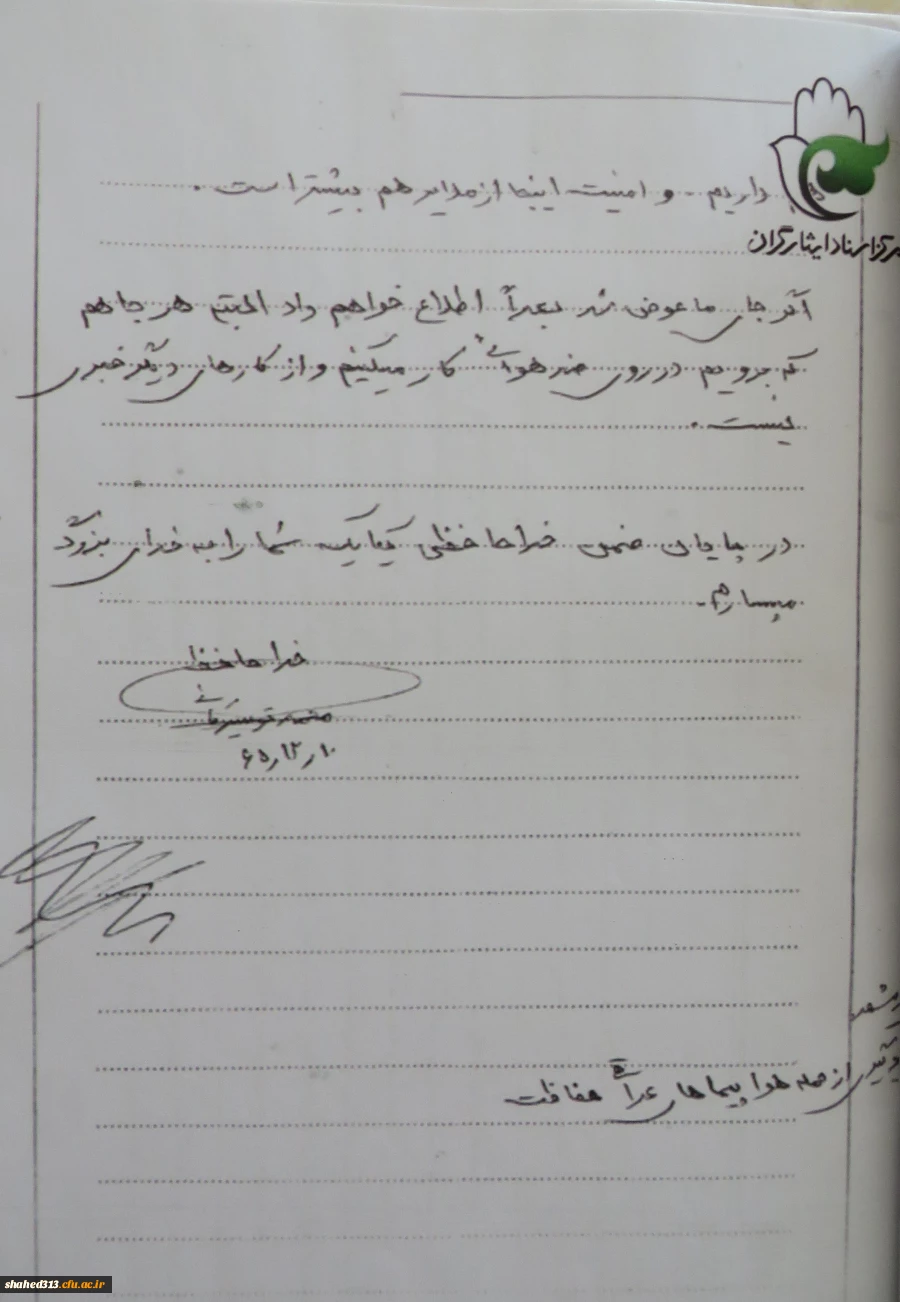 داریم. و امنیت اینجا از مدایر هم بیشتر است.
مرکز اسناد ایثارگران
اگر جای ما عوض شد بعداً اطلاع خواهم داد البته هر جا هم
که برویم در روی ضد هوائی کار میکنیم و از کارهای دیگر خبری
نیست.
در پایان ضمن خداحافظی یکایک شما را به خدای بزرگ
میسپارم.
خداحافظ
محمد
۱۰ر۱۲ر۶۵
از حمله هواپیماهای عراقی حفاظت
shahed313.cfu.ac.ir